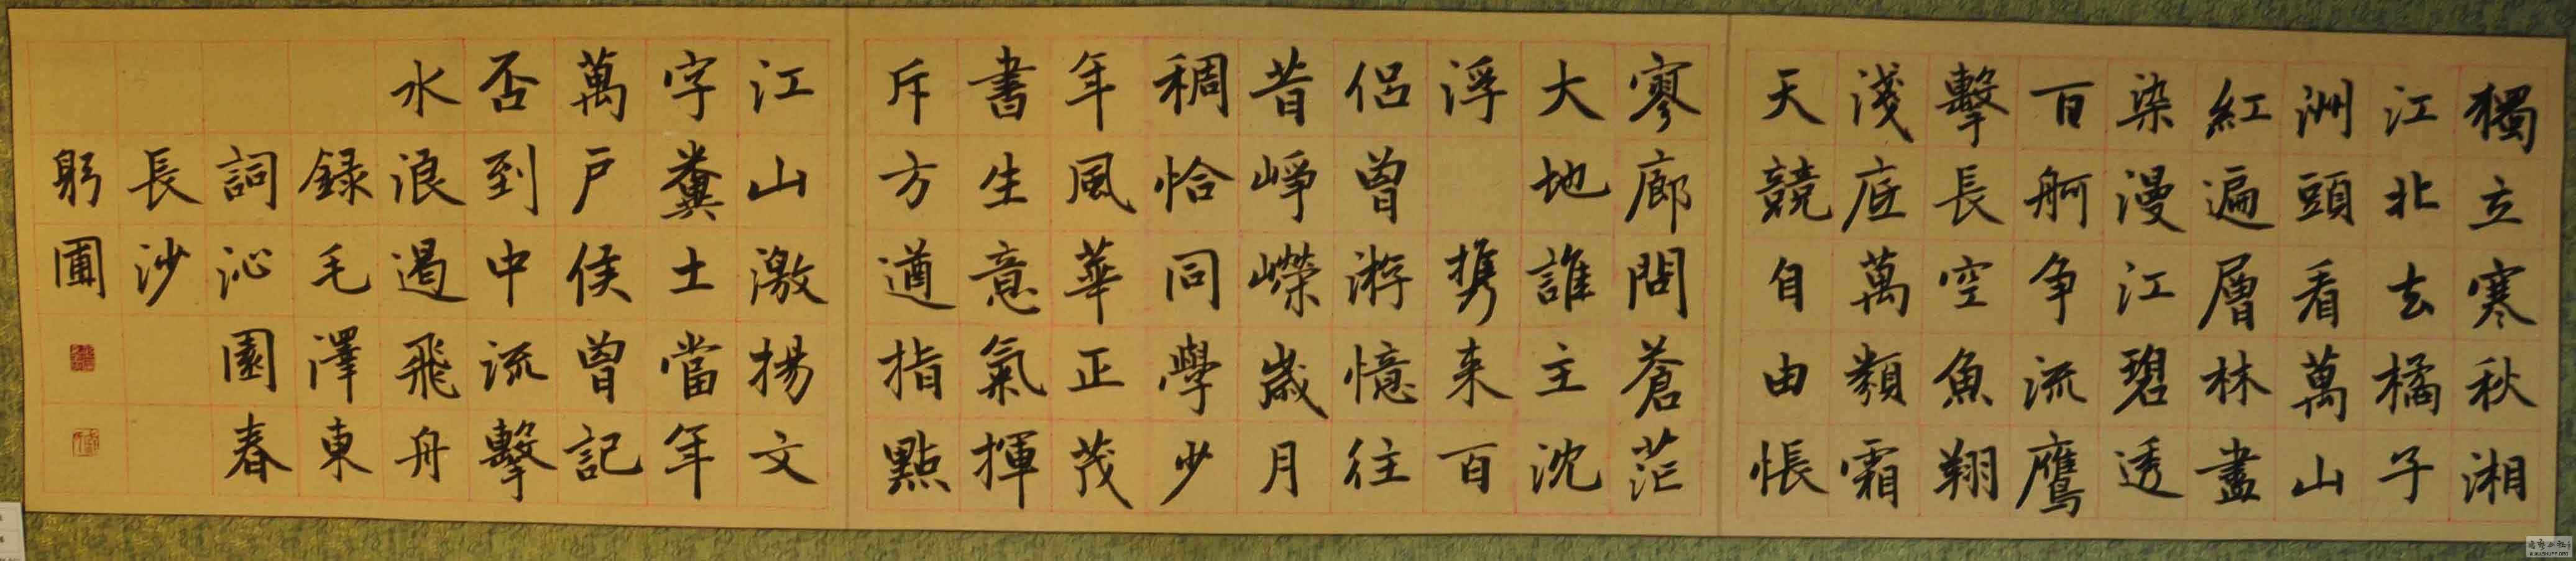 獨立寒秋湘
江北去橘子
洲頭看萬山
紅遍層林盡
染漫江碧透
百舸争流鷹
擊長空魚翔
淺底萬類霜
天競自由悵
寥廓問蒼茫
大地誰主沈
浮 攜来百
侣曾游憶往
昔崢嶸歲月
稠恰同學少
年風華正茂
書生意氣揮
斥方遒指點
江山激揚文
字糞土當年
萬户侯曾記
否到中流擊
水浪遏飛舟
録毛澤東
詞沁園春
長沙
躬圃